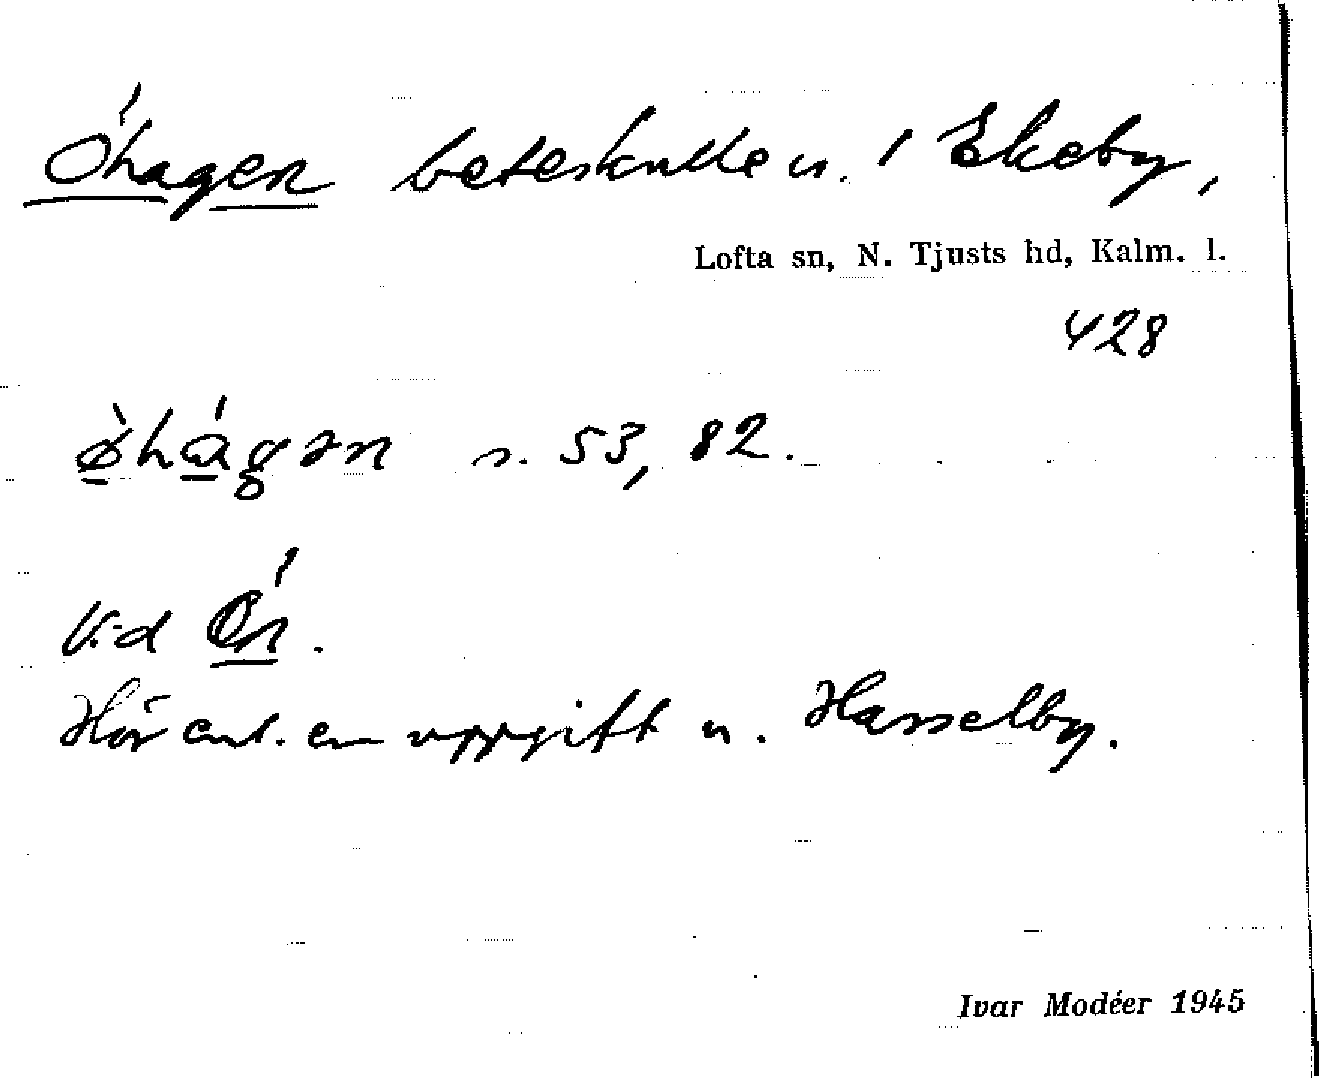 Öhagen beteskulle u. 1 Ekeby,
Lofta sn, N. Tjusts hd, Kalm. l.
428
ø̀hágən s. 53, 82.
Vid Ön.
Hör enl. en uppgift u. Hasselby.
Ivar Modéer 1945